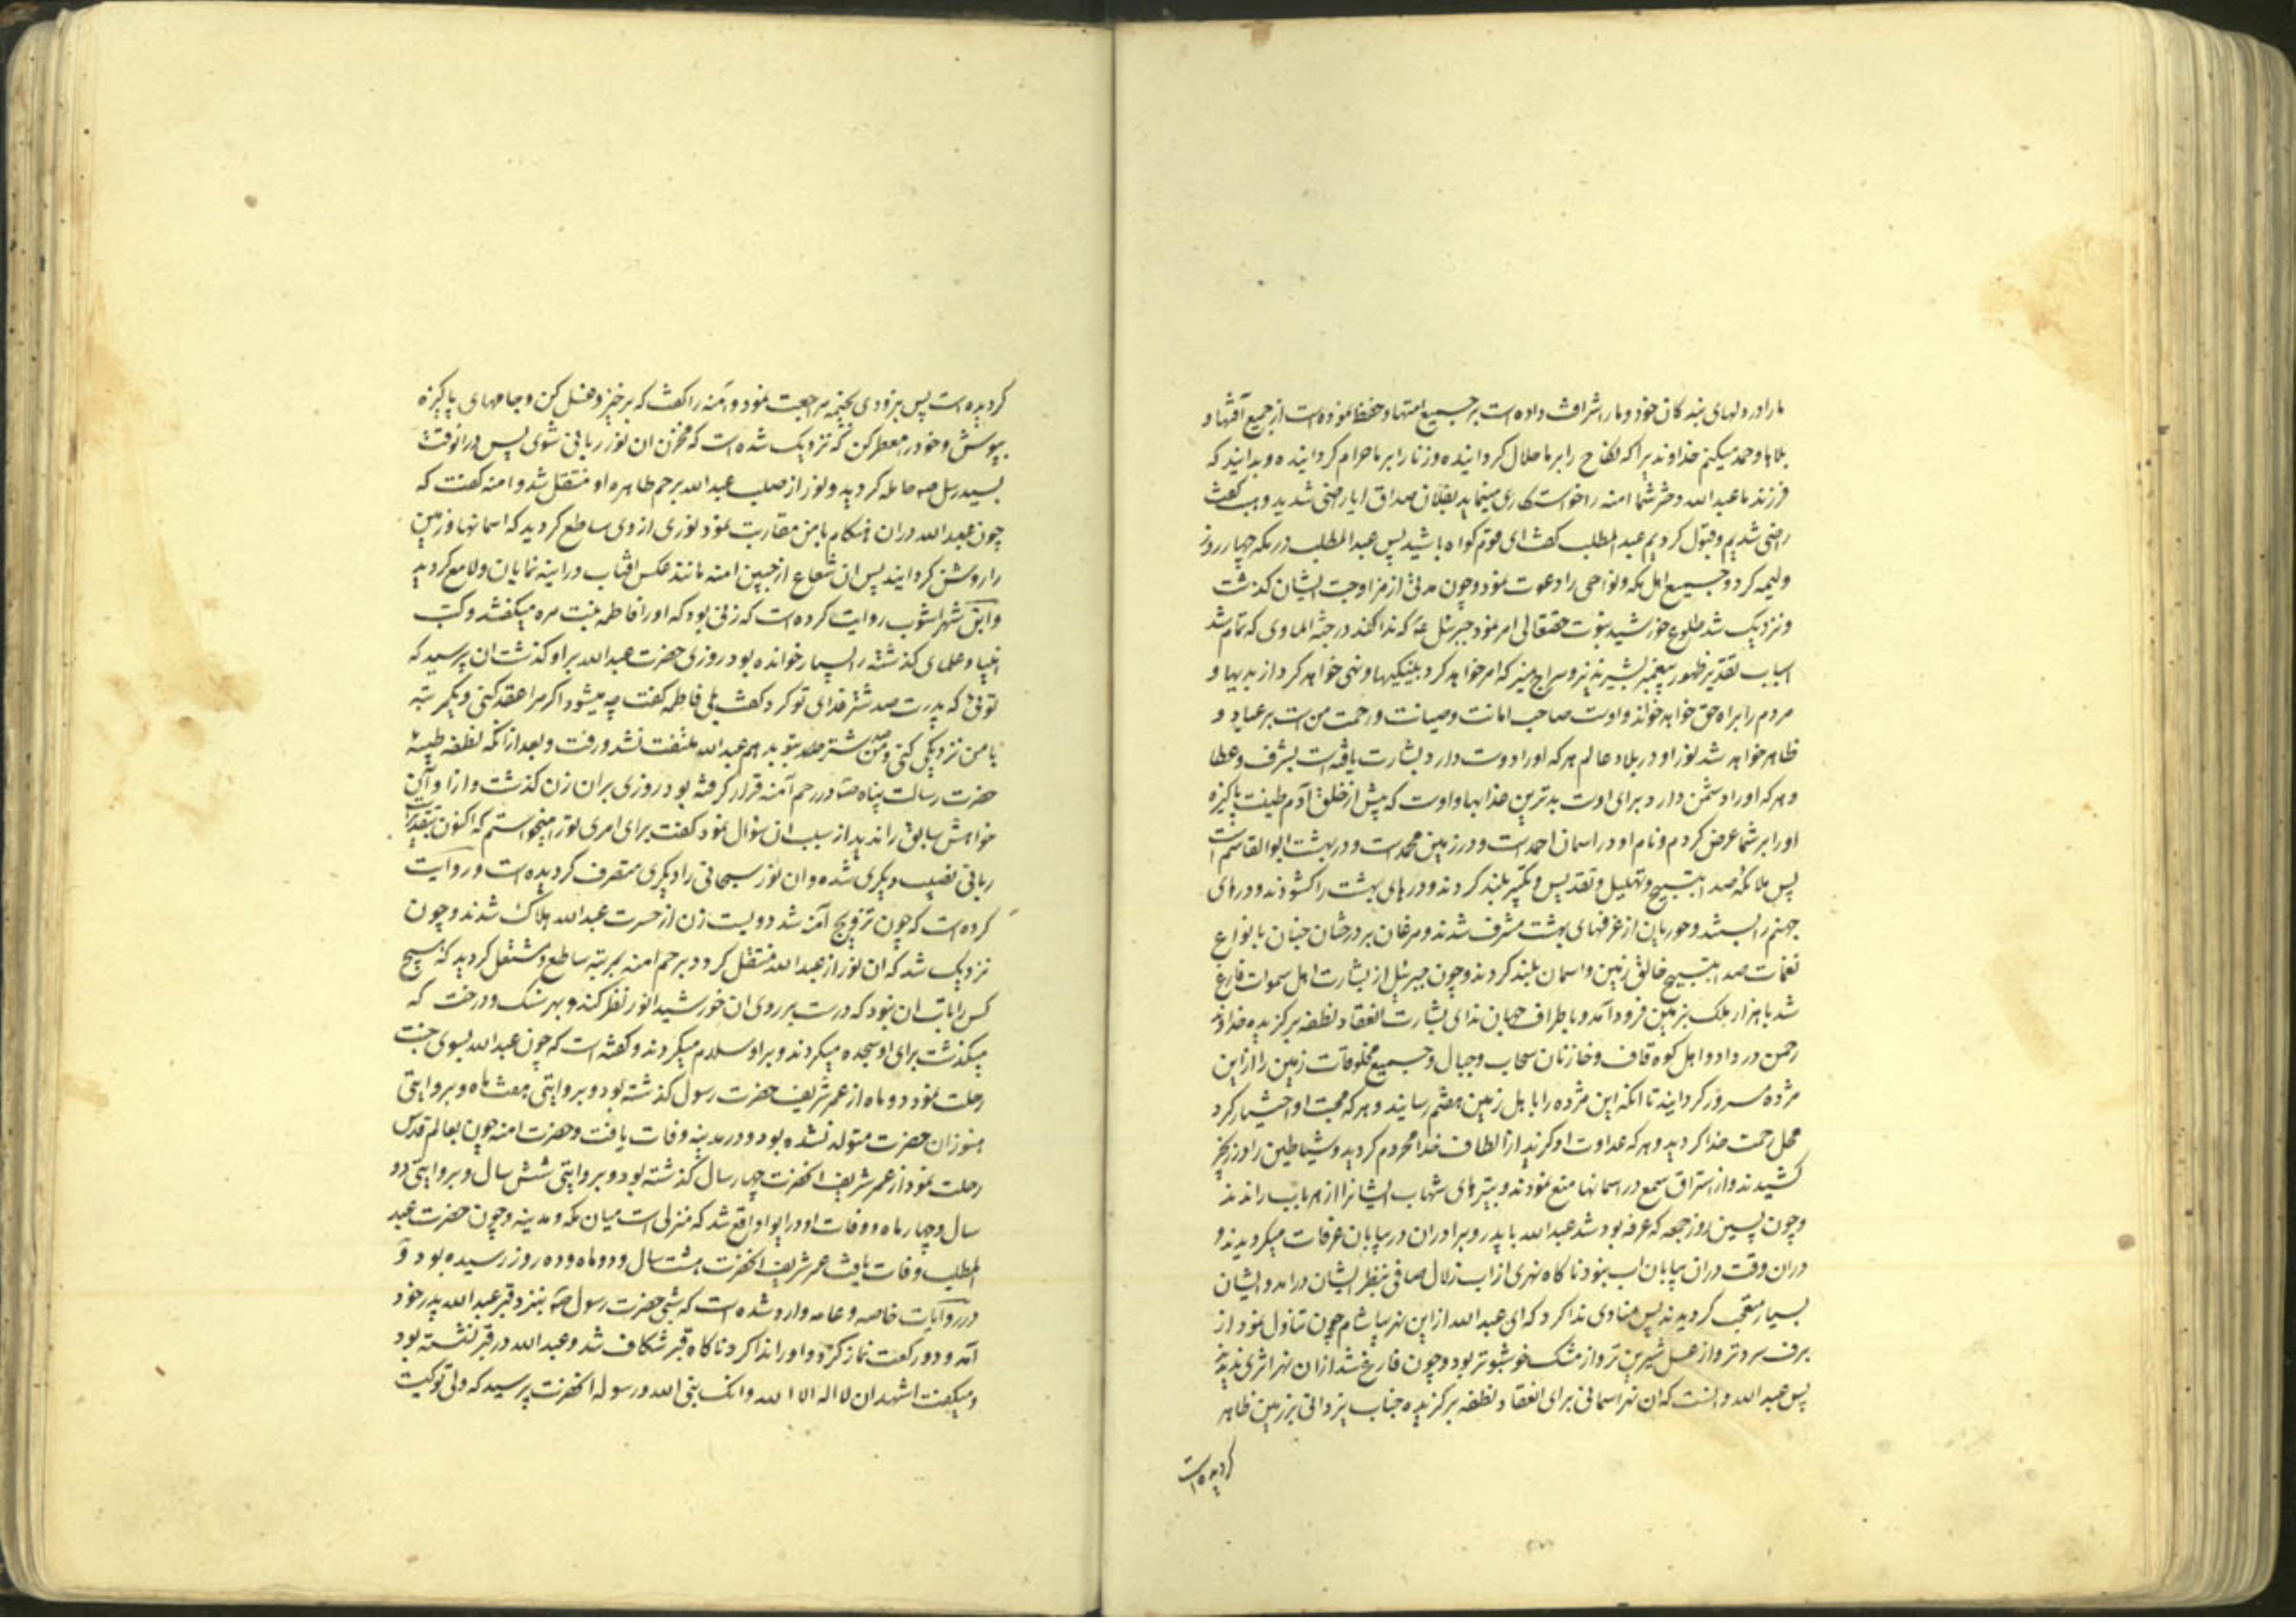 ما را در دلهای بندکان خود و ما را شرافت داده است بر جمیع امتها و حفظ نموده است از جمیع آفتها و
بلاها و حمد میکنم خداوندیرا که نکاح را بر ما حلال کردانیده و زنا را بر ما حرام کردانیده و بدانید که
فرزند ما عبدالله دختر شما امنه را خواستکاری مینماید بفلان صداق ایا راضی شدید وهب کفت
راضی شدیم و قبول کردیم عبدالمطلب کفت ای قوم کواه باشید پس عبدالمطلب در مکه چهار روز
ولیمه کرد و جمیع اهل مکه و نواحی را دعوت نمود و چون مدتی از مزاوجت ایشان کذشت
و نزدیک شد طلوع خورشید نبوت حقتعالی امر نمود جبرئیل ع که ندا کند در جنة الماوی که تمام شد
اسباب تقدیر ظهور پیغمبر بشیر نذیر و سراج منیر که امر خواهد کرد بنیکیها و نهی خواهد کرد از بدیها و
مردم را براه حق خواهد خواند و اوست صاحب امانت و صیانت و رحمت من است بر عباد و
ظاهر خواهد شد نور او در بلاد عالم هر که او را دوست دارد بشارت یافته است بشرف و عطا
و هر که او را دشمن دارد برای اوست بدترین عذابها و اوست که پیش از خلق آدم طینت پاکیزه
او را بر شما عرض کردم و نام او در اسمان احمد است و در زمین محمد است و در بهشت ابوالقاسم است
پس ملائکه صدا بتسبیح و تهلیل و تقدیس و تکبیر بلند کردند و درهای بهشت را کشودند و درهای
جهنم را بستند و حوریان از غرفهای بهشت مشرف شدند و مرغان بر درختان جنان بانواع
نغمات صدا بتسبیح خالق زمین و اسمان بلند کردند و چون جبرئیل از بشارت اهل سموات فارغ
شد با هزار ملک بزمین فرود آمد و باطراف جهان ندای بشارت انعقاد نطفه برکزیده خداوند
رحمن در داد و اهل کوه قاف و خازنان سحاب و جبال و جمیع مخلوقات زمین را از این
مژده مسرور کردانید تا انکه این مژده را باهل زمین هفتم رسانید و هر که محبت او اختیار کرد
محل رحمت خدا کردید و هر که عداوت او کزید از الطاف خدا محروم کردید و شیاطین را در زنجیر
کشیدند و از استراق سمع در اسمانها منع نمودند و بتیرهای شهاب ایشانرا از هر باب راندند
و چون پسین روز جمعه که عرفه بود شد عبدالله با پدر و برادران در بیابان عرفات میکردیدند و
دران وقت دران بیابان اب نبود ناکاه نهری از اب زلال صافی بنظر ایشان درامد و ایشان
بسیار متعجب کردیدند پس منادی ندا کرد که ای عبدالله از این نهر بیاشام چون تناول نمود از
برف سردتر و از عسل شیرین تر و از مشک خوشبوتر بود و چون فارغ شد از ان نهر اثری ندید
پس عبدالله دانست که ان نهر اسمانی برای انعقاد نطفه برکزیده جناب یزدانی بر زمین ظاهر
کردیده است
کردیده است پس بزودی بخیمه مراجعت نمود و آمنه را کفت که برخیز و غسل کن و جامهای پاکیزه
بپوش و خود را معطر کن که نزدیک شده است که مخزن ان نور ربانی شوی پس در انوقت
بسید رسل ص حامله کردید و نور از صلب عبدالله برحم طاهره او منتقل شد و امنه کفت که
چون عبدالله دران هنکام با من مقاربت نمود نوری از وی ساطع کردید که اسمانها و زمین
را روشن کردانید پس ان شعاع از جبین امنه مانند عکس افتاب در اینه نمایان و لامع کردید
و ابن شهراشوب روایت کرده است که زنی بود که او را فاطمه بنت مره میکفتند و کتب
انبیا و علمای کذشته را بسیار خوانده بود روزی حضرت عبدالله بر او کذشت ان پرسید که
توئی که پدرت صد شتر فدای تو کرد کفت بلی فاطمه کفت چه میشود اکر مرا عقد کنی و یکمرتبه
با من نزدیکی کنی و من صد شتر بتو بدهم عبدالله ملتفت نشد و رفت و بعد از انکه نطفه طیبه
حضرت رسالت پناه ص در رحم آمنه قرار کرفته بود روزی بران زن کذشت و از او آن
خواهش سابق را ندید از سبب ان سؤال نمود کفت برای امری تو را میخواستم که اکنون بتقدیرات
ربانی نصیب دیکری شده و ان نور سبحانی را دیکری متصرف کردیده است و روایت
کرده است که چون تزویج آمنه شد دویست زن از حسرت عبدالله هلاک شدند و چون
نزدیک شد که ان نور از عبدالله منتقل کردد برحم امنه بمرتبه ساطع و مشتعل کردید که هیچ
کس را تاب ان نبود که درست بر روی ان خورشید انور نظر کند و بهر سنک و درخت که
میکذشت برای او سجده میکردند و بر او سلام میکردند و کفته است که چون عبدالله بسوی جنت
رحلت نمود دو ماه از عمر شریف حضرت رسول کذشته بود و بروایتی هفت ماه و بروایتی
هنوز ان حضرت متولد نشده بود و در مدینه وفات یافت و حضرت امنه چون بعالم قدس
رحلت نمود از عمر شریف انحضرت چهار سال کذشته بود و بروایتی شش سال و بروایتی دو
سال و چهار ماه و وفات او در ابوا واقع شد که منزلی است میان مکه و مدینه و چون حضرت عبد
المطلب وفات یافت عمر شریف انحضرت هشت سال و دو ماه و ده روز رسیده بود و
در روایات خاصه و عامه وارد شده است که شبی حضرت رسول ص بنزد قبر عبدالله پدر خود
آمد و دو رکعت نماز کرد و او را ندا کرد ناکاه قبر شکاف شد و عبدالله در قبر نشسته بود
و میکفت اشهد ان لا اله الا الله و انک نبی الله و رسوله انحضرت پرسید که ولی تو کیست